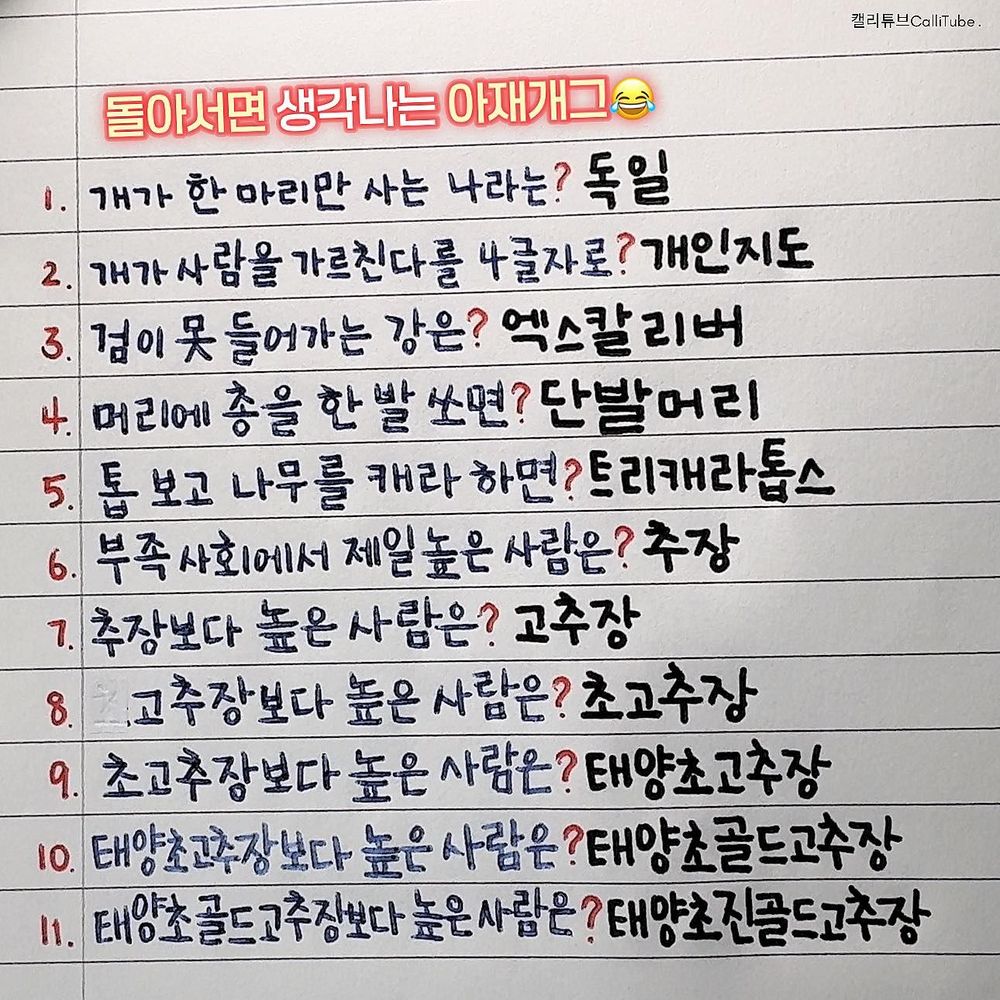 캘리튜브CalliTube.
돌아서면 생각나는 아재개그😂
1. 개가 한 마리만 사는 나라는? 독일
2. 개가 사람을 가르친다를 4글자로? 개인지도
3. 검이 못 들어가는 강은? 엑스칼리버
4. 머리에 총을 한 발 쏘면? 단발머리
5. 톱 보고 나무를 캐라 하면? 트리캐라톱스
6. 부족 사회에서 제일 높은 사람은? 추장
7. 추장보다 높은 사람은? 고추장
8. 고추장보다 높은 사람은? 초고추장
9. 초고추장보다 높은 사람은? 태양초고추장
10. 태양초고추장보다 높은 사람은? 태양초골드고추장
11. 태양초골드고추장보다 높은 사람은? 태양초진골드고추장